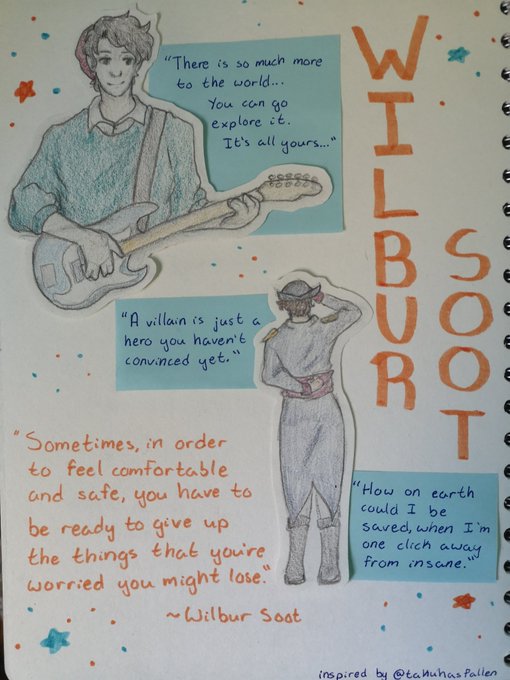 "There is so much more
to the world...
You can go
explore it.
It's all yours..."
WILBUR
SOOT
"A villain is just a
hero you haven't
convinced yet."
"Sometimes, in order
to feel comfortable
and safe, you have to
be ready to give up
the things that you're
worried you might lose."
~Wilbur Soot
"How on earth
could I be
saved, when I'm
one click away
from insane."
inspired by @tanuhasfallen